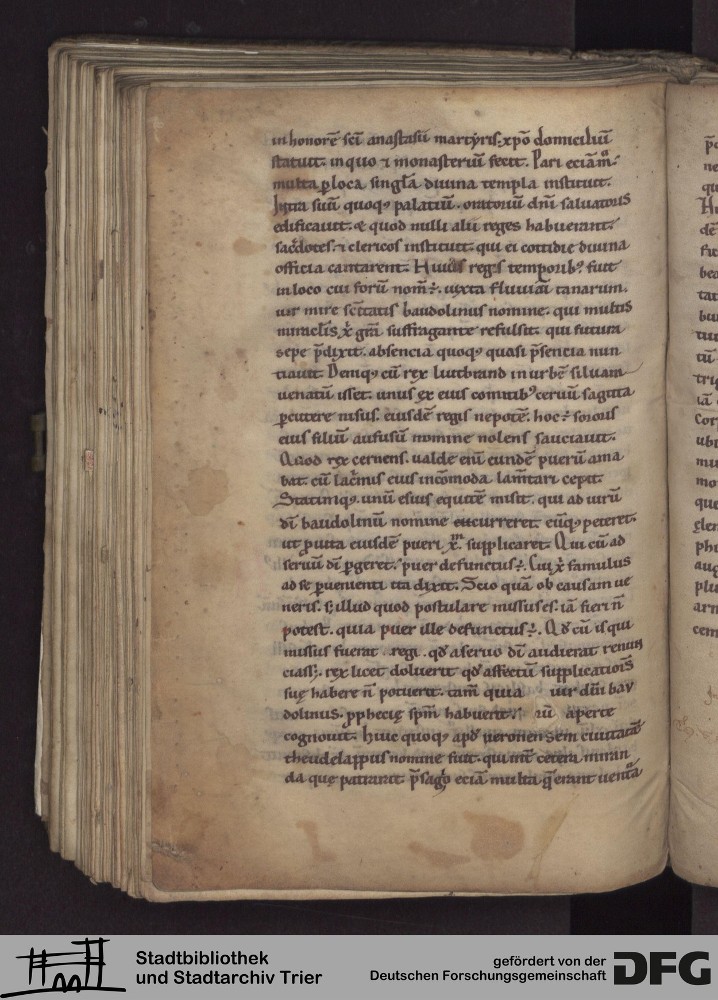 in honorē sc̄i anastasii martyris. xp̄o domiciliū
statuit. in quo ⁊ monasteriū fecit. Pari eciā m̊
multa ꝑ loca singl̄a diuina templa instituit.
Intra suū quoqꝫ palatiū. oratoriū dn̄i saluatoris
edificauit. & quod nulli alii reges habuerant.
sac̄dotes. ⁊ clericos instituit. qui ei cottidie diuina
officia cantarent. Huius regis temporibꝰ fuit
in loco cui forū nom̄ ÷. iuxta fluuiū tanarum.
uir mire sc̄itatis baudolinus nomine. qui multis
miraclis x̄ gr̄a suffragante refulsit. qui futura
sepe p̄dixit. absencia quoqꝫ quasi p̄sencia nun
tiauit. Deniqꝫ cū rex liutbrand in urbē siluam
uenatū isset. unus ex eius comitibꝰ ceruū sagitta
ꝑcutere nisus. eiusdē regis nepotē. hoc ÷ sororis
eius filiū aufusū nomine nolens sauciauit.
Quod rex cernens. ualde enī eundē puerū ama
bat. cū lac̄mis eius incōmoda lam̄tari cepit.
Statimqꝫ. unū e suis equitē misit. qui ad uirū
dī baudolinū nomine cucurreret. eūqꝫ peteret.
ut ꝓ uita eiusdē pueri x̄m supplicaret. Qui cū ad
seruū dī ꝑgeret. puer defunctus ÷. Cui x̄ famulus
ad se ꝑuenienti ita dixit. Scio quā ob causam ue
neris. s; illud quod postulare missus es. iā fieri n̄
potest. quia puer ille defunctus ÷. Qd̄ cū is qui
missus fuerat regi. qd̄ a seruo dī audierat renun
ciass;. rex licet doluerit qd̄ affectū supplicationis
suę habere n̄ potuerit. tam̄ quia uir dn̄i bau
dolinus. ꝓphecię sp̄m habuerit. aperte
cognouit. Huic quoqꝫ apd̄ ueronensem ciuitatē
theudelappus nomine fuit. qui int̄ cetera miran
da quę patrarit p̄sago eciā multa q̄ erant uentᵃ
Stadtbibliothek
und Stadtarchiv Trier
gefördert von der
Deutschen Forschungsgemeinschaft
DFG